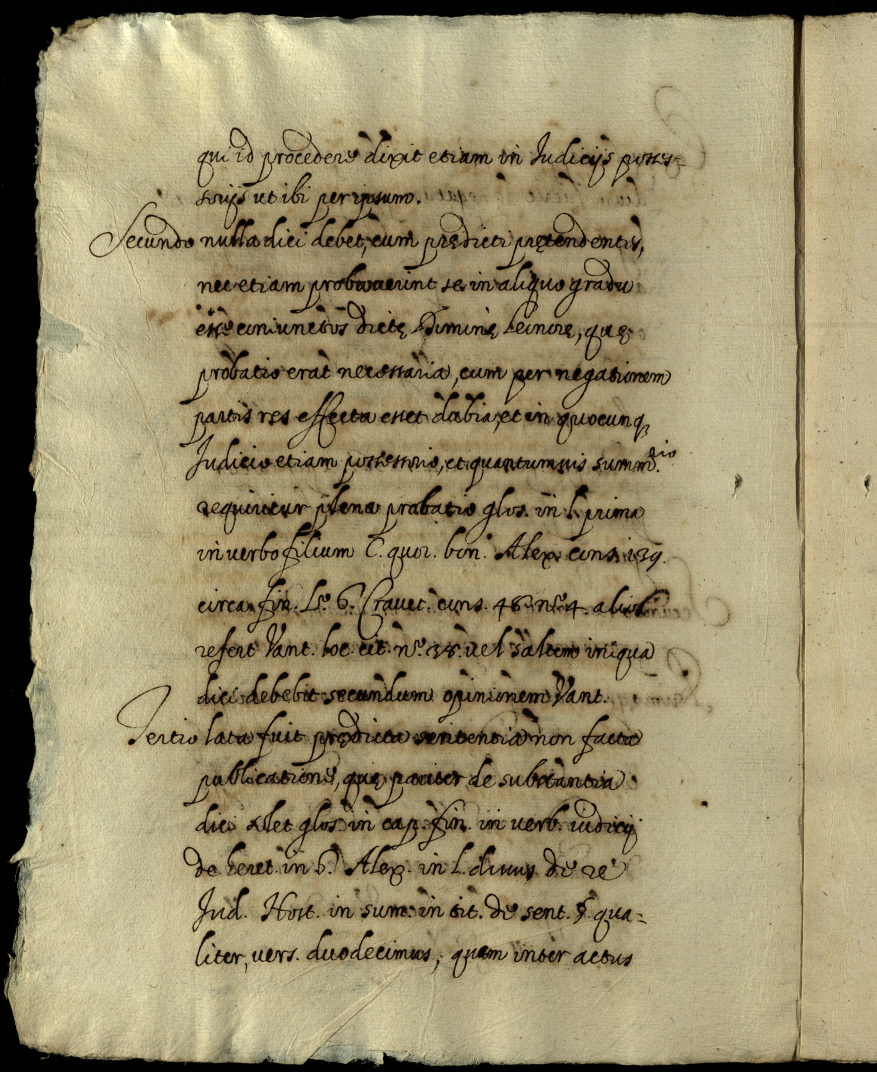 qui id procedere dixit etiam in Judicijs posses-
sorijs ut ibi per ipsum.
Secundo nulla dici debet, cum prędicti prętendentes,
nec etiam probaverint se in aliquo gradu
esse coniunctos dictę Dominę Leonorę, quę
probatio erat necessaria, cum per negationem
partis res effecta esset dubia, et in quocunq
Judicio etiam possessorio, et quantumuis summrio.
requiritur plena probatio glos. in l. prima
in verbo filium C. quor. bon. Alex. cons. 139.
circa fin. L.º 6. Crauet. cons. 46. nº. 4. alios
refert Vant. loc. cit. nº. 38. uel saltem iniqua
dici debebit secundum opinionem Vant.
Tertio lata fuit prędicta sententia non facta
publicatione, quę pariter de substantia
dici glos. in cap. fin. in verb. iudicij
de heret. in 6. Alex. in l. diuus de re
Jud. Host. in sum. in tit. de sent. §. qua-
liter, vers. duodecimus, quam inter actus